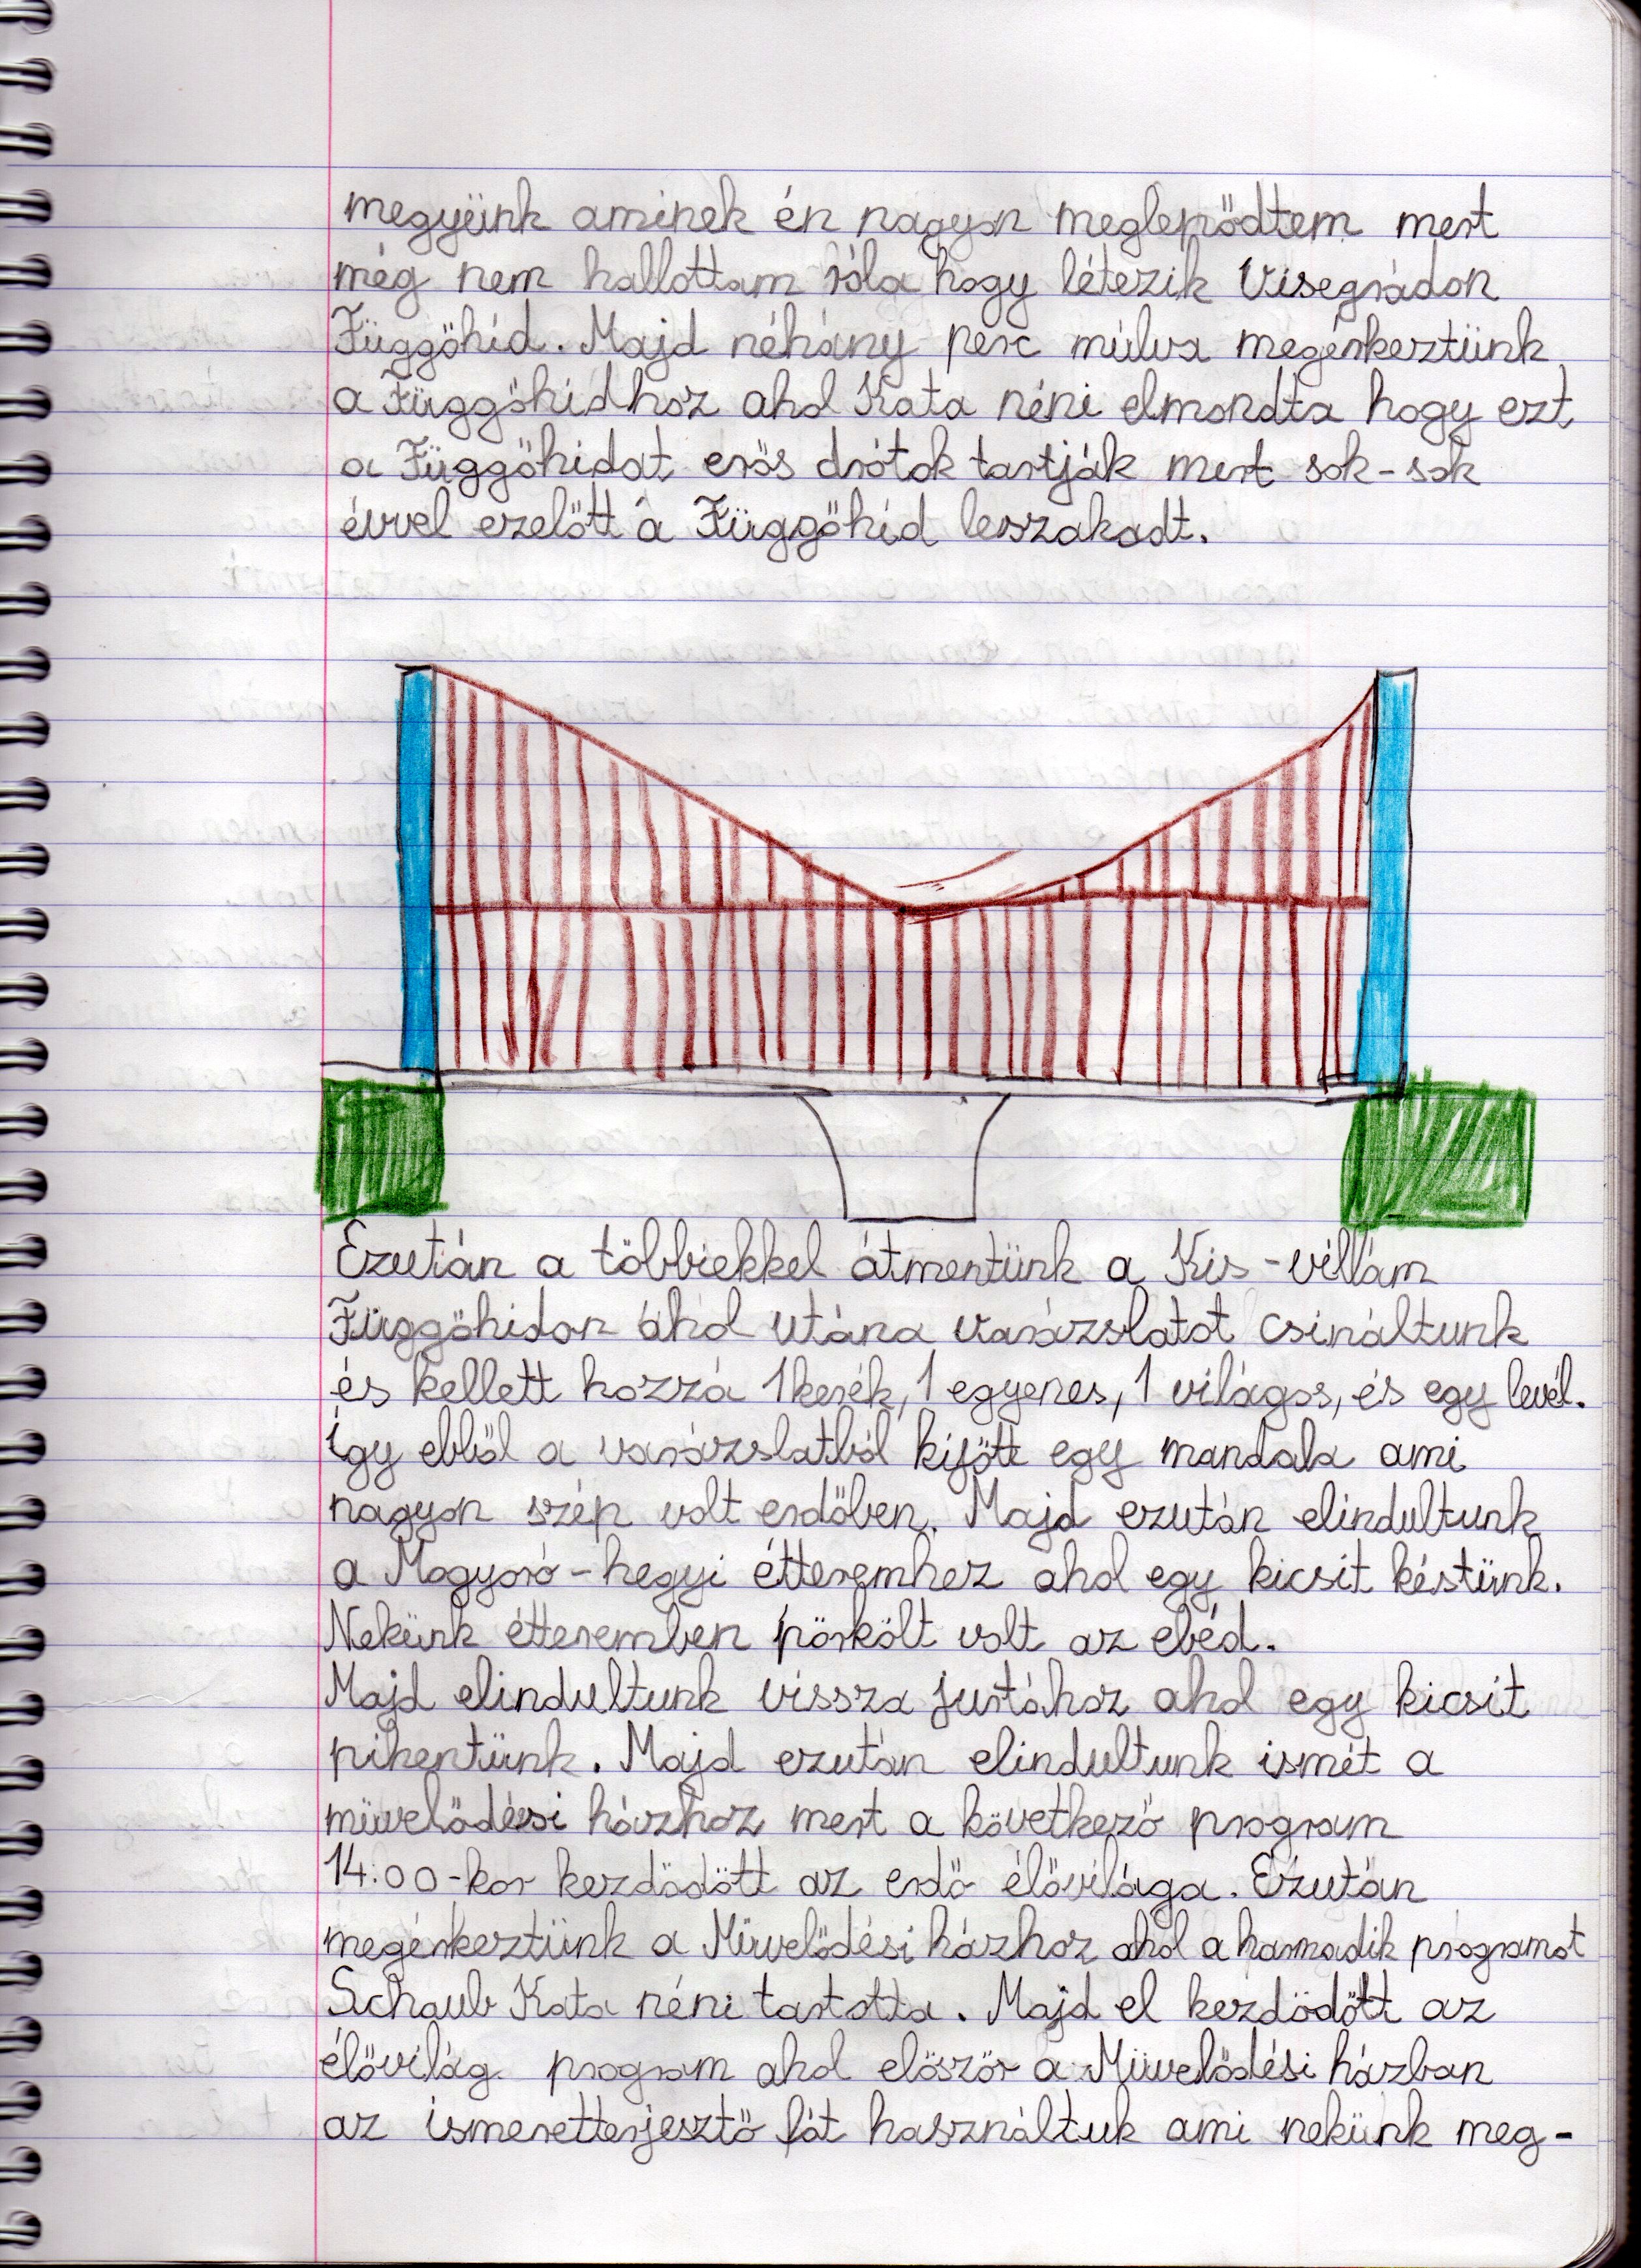 megyünk aminek én nagyon meglepődtem mert
még nem hallottam róla hogy létezik Visegrádon
Függőhíd. Majd néhány perc múlva megérkeztünk
a Függőhídhoz ahol Kata néni elmondta hogy ezt
a Függőhidat erős drótok tartják mert sok-sok
évvel ezelőtt a Függőhíd leszakadt.
Ezután a többiekkel átmentünk a Kis-villám
Függőhidon ahol utána varázslatot csináltunk
és kellett hozzá 1 kerék, 1 egyenes, 1 világos, és egy levél.
így ebből a varázslatból kijött egy mandala ami
nagyon szép volt erdőben. Majd ezután elindultunk
a Mogyoró-hegyi étteremhez ahol egy kicsit késtünk.
Nekünk étteremben pörkölt volt az ebéd.
Majd elindultunk vissza jurtához ahol egy kicsit
pihentünk. Majd ezután elindultunk ismét a
müvelődési házhoz mert a következő program
14:00-kor kezdödött az erdő élővilága. Ezután
megérkeztünk a Müvelődési házhoz ahol a harmadik programot
Schaub Kata néni tartotta. Majd el kezdödött az
élővilág program ahol először a Müvelődési házban
az ismeretterjesztő fát használtuk ami nekünk meg-